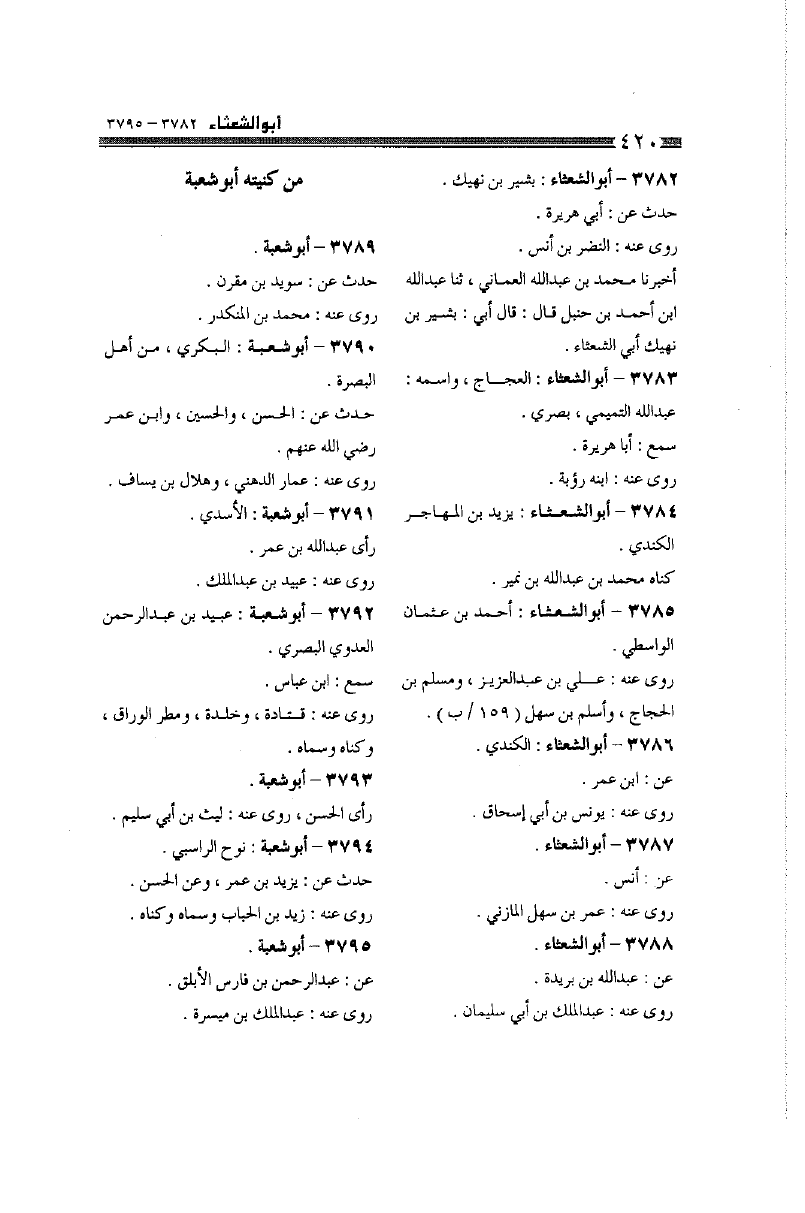 أبوالشعثاء ٣٧٨٢ – ٣٧٩٥
٤٢٠
٣٧٨٢ – أبوالشعثاء : بشير بن نهيك .
حدث عن : أبي هريرة .
روى عنه : النضر بن أنس .
أخبرنا محمد بن عبدالله العماني ، ثنا عبدالله
ابن أحمد بن حنبل قال : قال أبي : بشير بن
نهيك أبي الشعثاء .
٣٧٨٣ – أبوالشعثاء : العجاج ، واسمه :
عبدالله التميمي ، بصري .
سمع : أبا هريرة .
روى عنه : ابنه رؤبة .
٣٧٨٤ – أبوالشعثاء : يزيد بن المهاجر
الكندي .
كناه محمد بن عبدالله بن نمير .
٣٧٨٥ – أبوالشعثاء : أحمد بن عثمان
الواسطي .
روى عنه : علي بن عبدالعزيز ، ومسلم بن
الحجاج ، وأسلم بن سهل ( ١٥٩ / ب ) .
٣٧٨٦ – أبوالشعثاء : الكندي .
عن : ابن عمر .
روى عنه : يونس بن أبي إسحاق .
٣٧٨٧ – أبوالشعثاء .
عن : أنس .
روى عنه : عمر بن سهل المازني .
٣٧٨٨ – أبوالشعثاء .
عن : عبدالله بن بريدة .
روى عنه : عبدالملك بن أبي سليمان .
من كنيته أبو شعبة
٣٧٨٩ – أبوشعبة .
حدث عن : سويد بن مقرن .
روى عنه : محمد بن المنكدر .
٣٧٩٠ – أبوشعبة : البكري ، من أهل
البصرة .
حدث عن : الحسن ، والحسين ، وابن عمر
رضي الله عنهم .
روى عنه : عمار الدهني ، وهلال بن يساف .
٣٧٩١ – أبوشعبة : الأسدي .
رأى عبدالله بن عمر .
روى عنه : عبيد بن عبدالملك .
٣٧٩٢ – أبوشعبة : عبيد بن عبدالرحمن
العدوي البصري .
سمع : ابن عباس .
روى عنه : قتادة ، وخلدة ، ومطر الوراق ،
وكناه وسماه .
٣٧٩٣ – أبوشعبة .
رأى الحسن ، روى عنه : ليث بن أبي سليم .
٣٧٩٤ – أبوشعبة : نوح الراسبي .
حدث عن : يزيد بن عمر ، وعن الحسن .
روى عنه : زيد بن الحباب وسماه وكناه .
٣٧٩٥ – أبوشعبة .
عن : عبدالرحمن بن فارس الأبلق .
روى عنه : عبدالملك بن ميسرة .